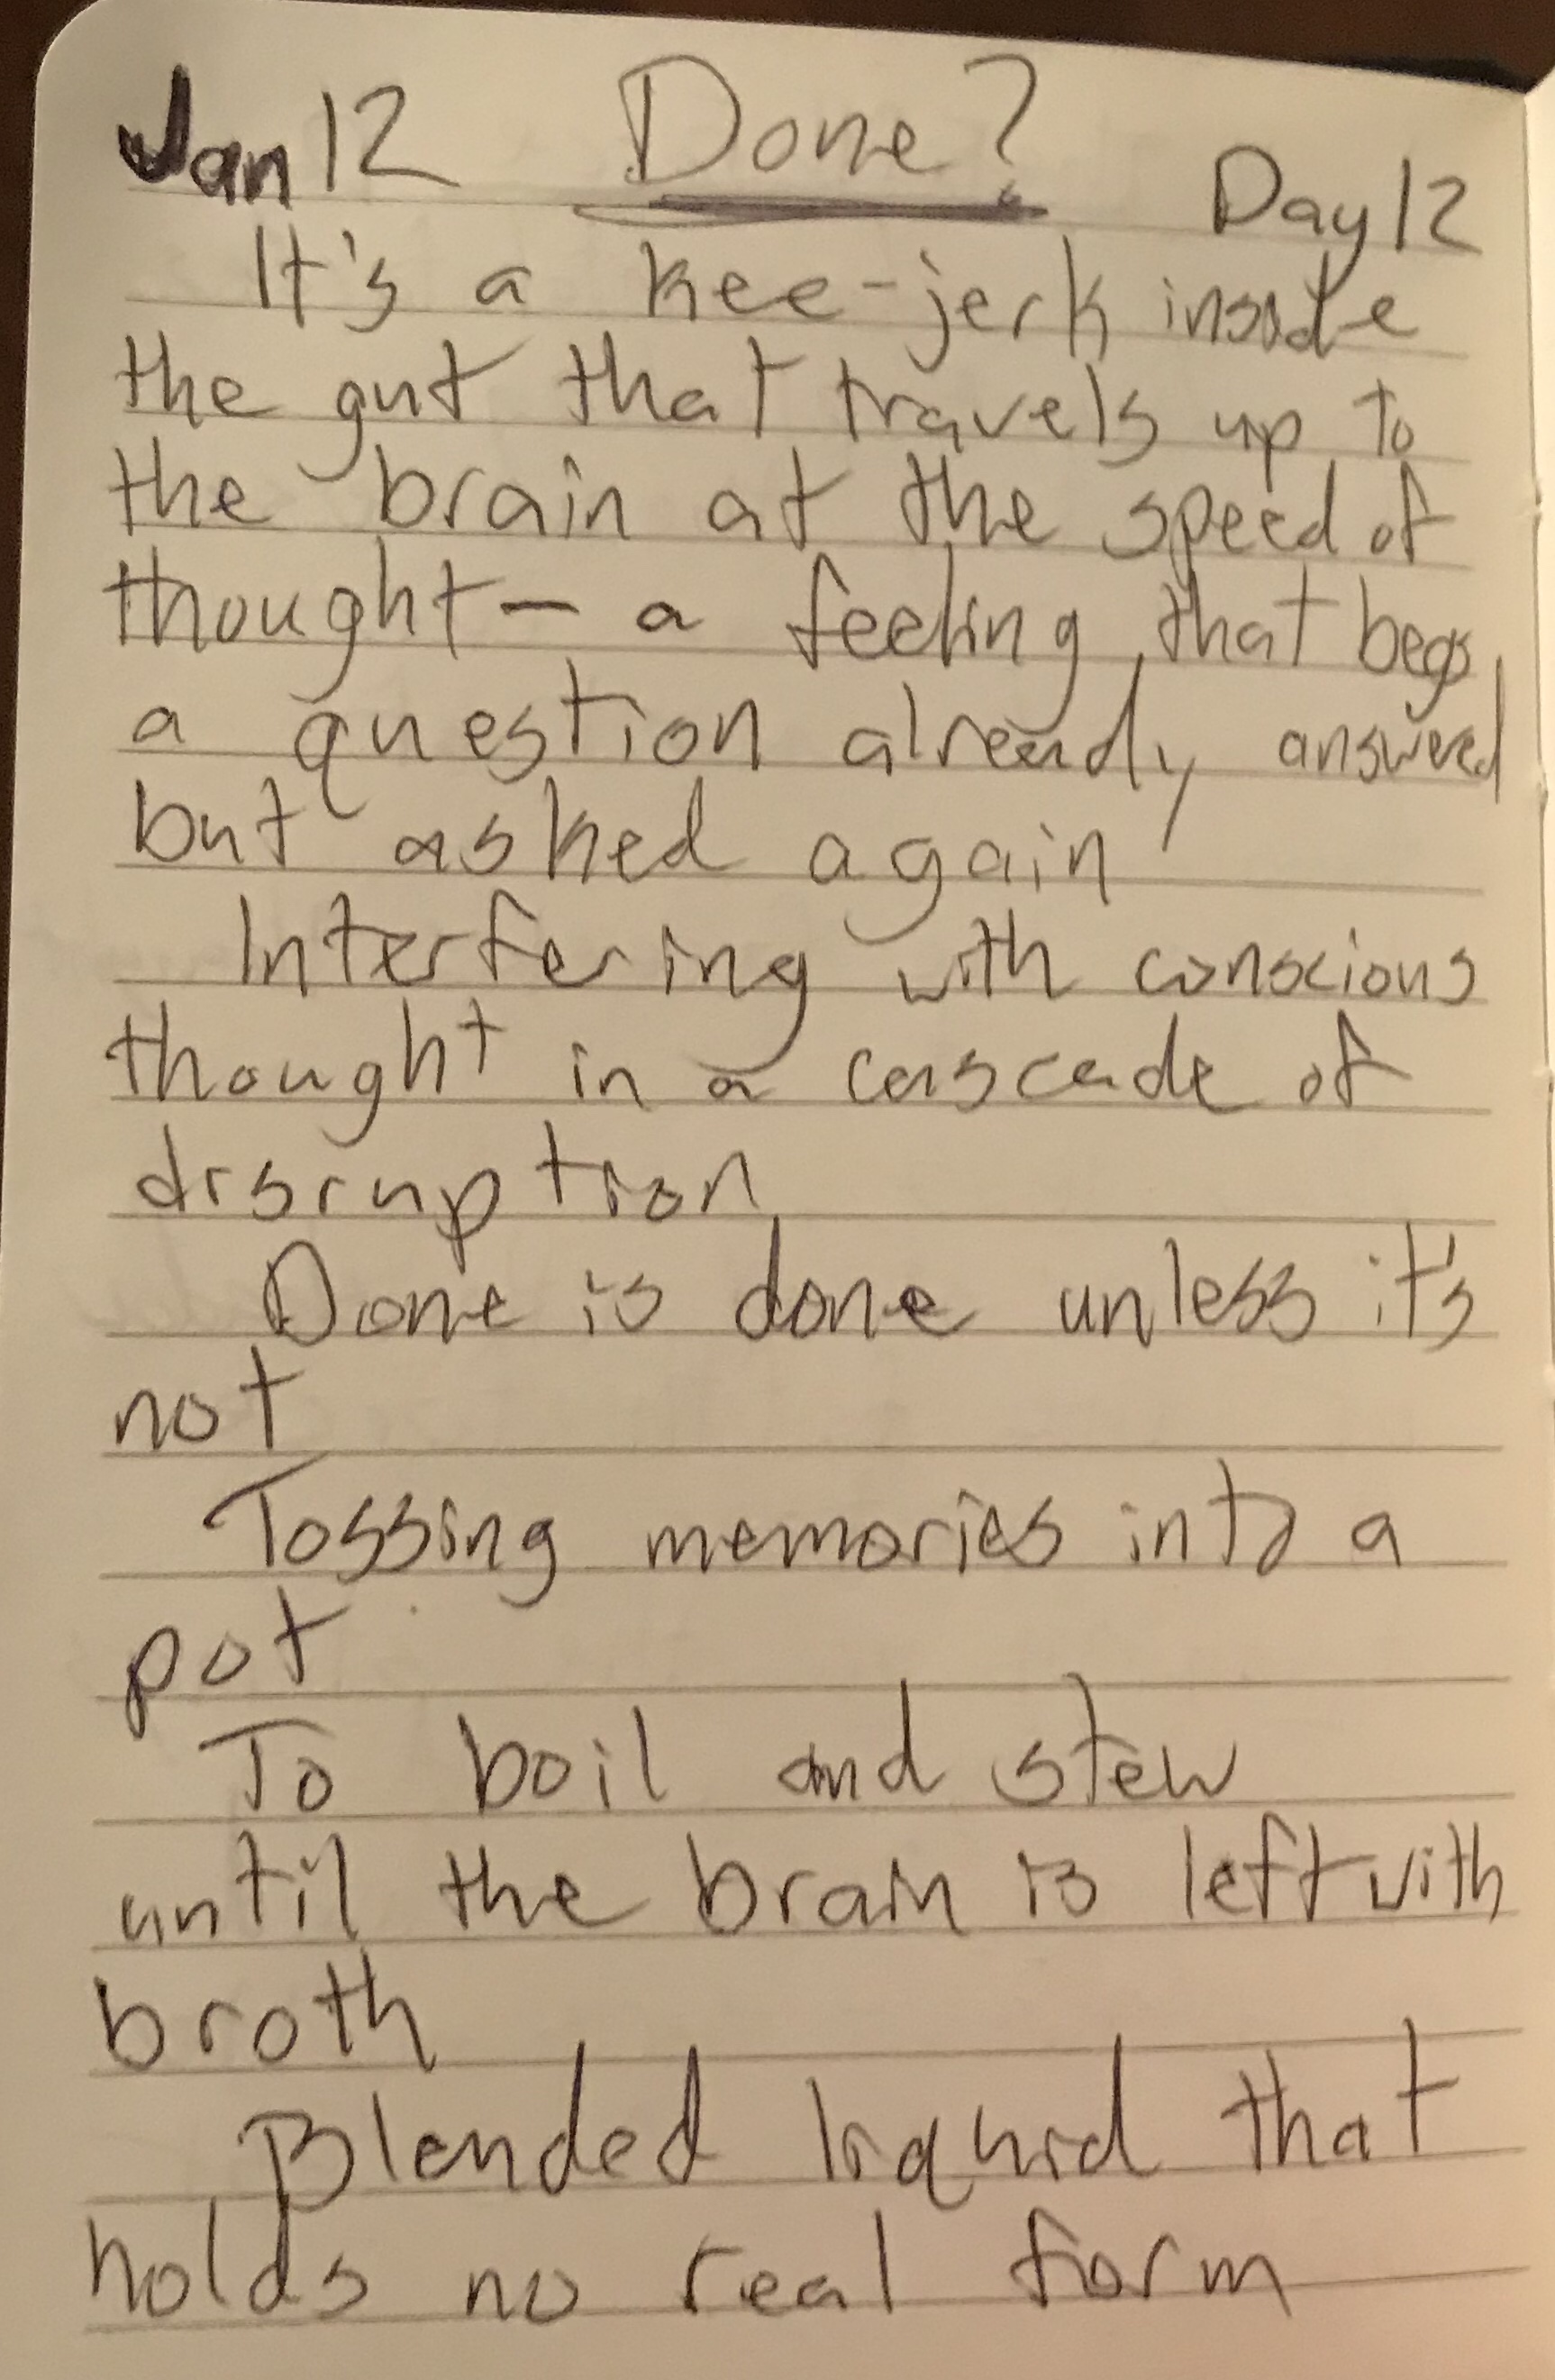 Jan 12 Done? Day 12
It's a kee-jerk inside
the gut that travels up to
the brain at the speed of
thought — a feeling that begs
a question already answered
but asked again
Interfering with conscious
thought in a cascade of
disruption
Done is done unless it's
not
Tossing memories into a
pot
To boil and stew
until the brain is left with
broth
Blended liquid that
holds no real form